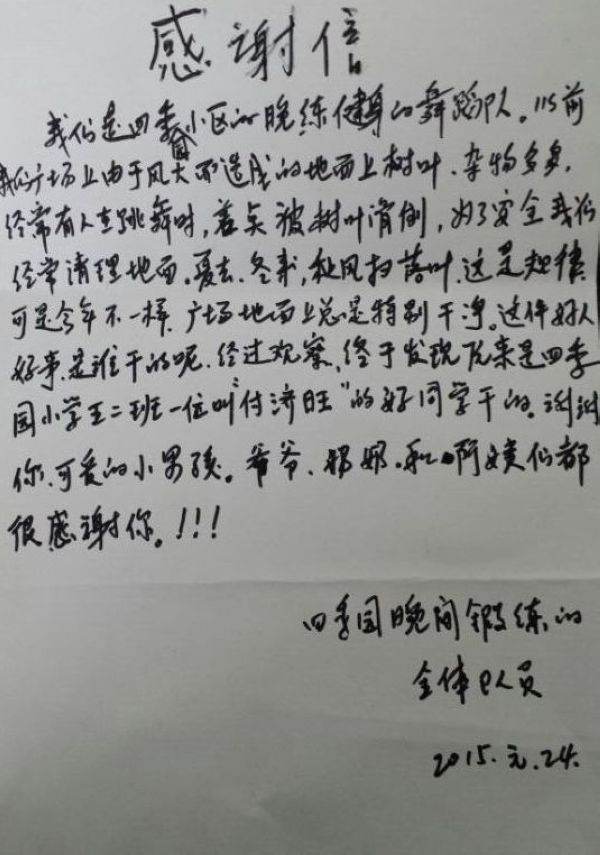 感谢信
我们是四季园小区的晚练健身的舞蹈队。以前
我们广场上由于风大而造成的地面上树叶、杂物多多,
经常有人在跳舞时,差点被树叶滑倒,为了安全我们
经常清理地面。夏去、冬来,秋风扫落叶,这是规律,
可是今年不一样,广场地面上总是特别干净。这件好人
好事是谁干的呢、经过观察,终于发现原来是四季
园小学五二班一位叫“付济旺”的好同学干的。谢谢
你、可爱的小男孩。爷爷、奶奶、和啊姨们都
很感谢你。!!!
四季园晚间锻练的
全体人员
2015.元.24.